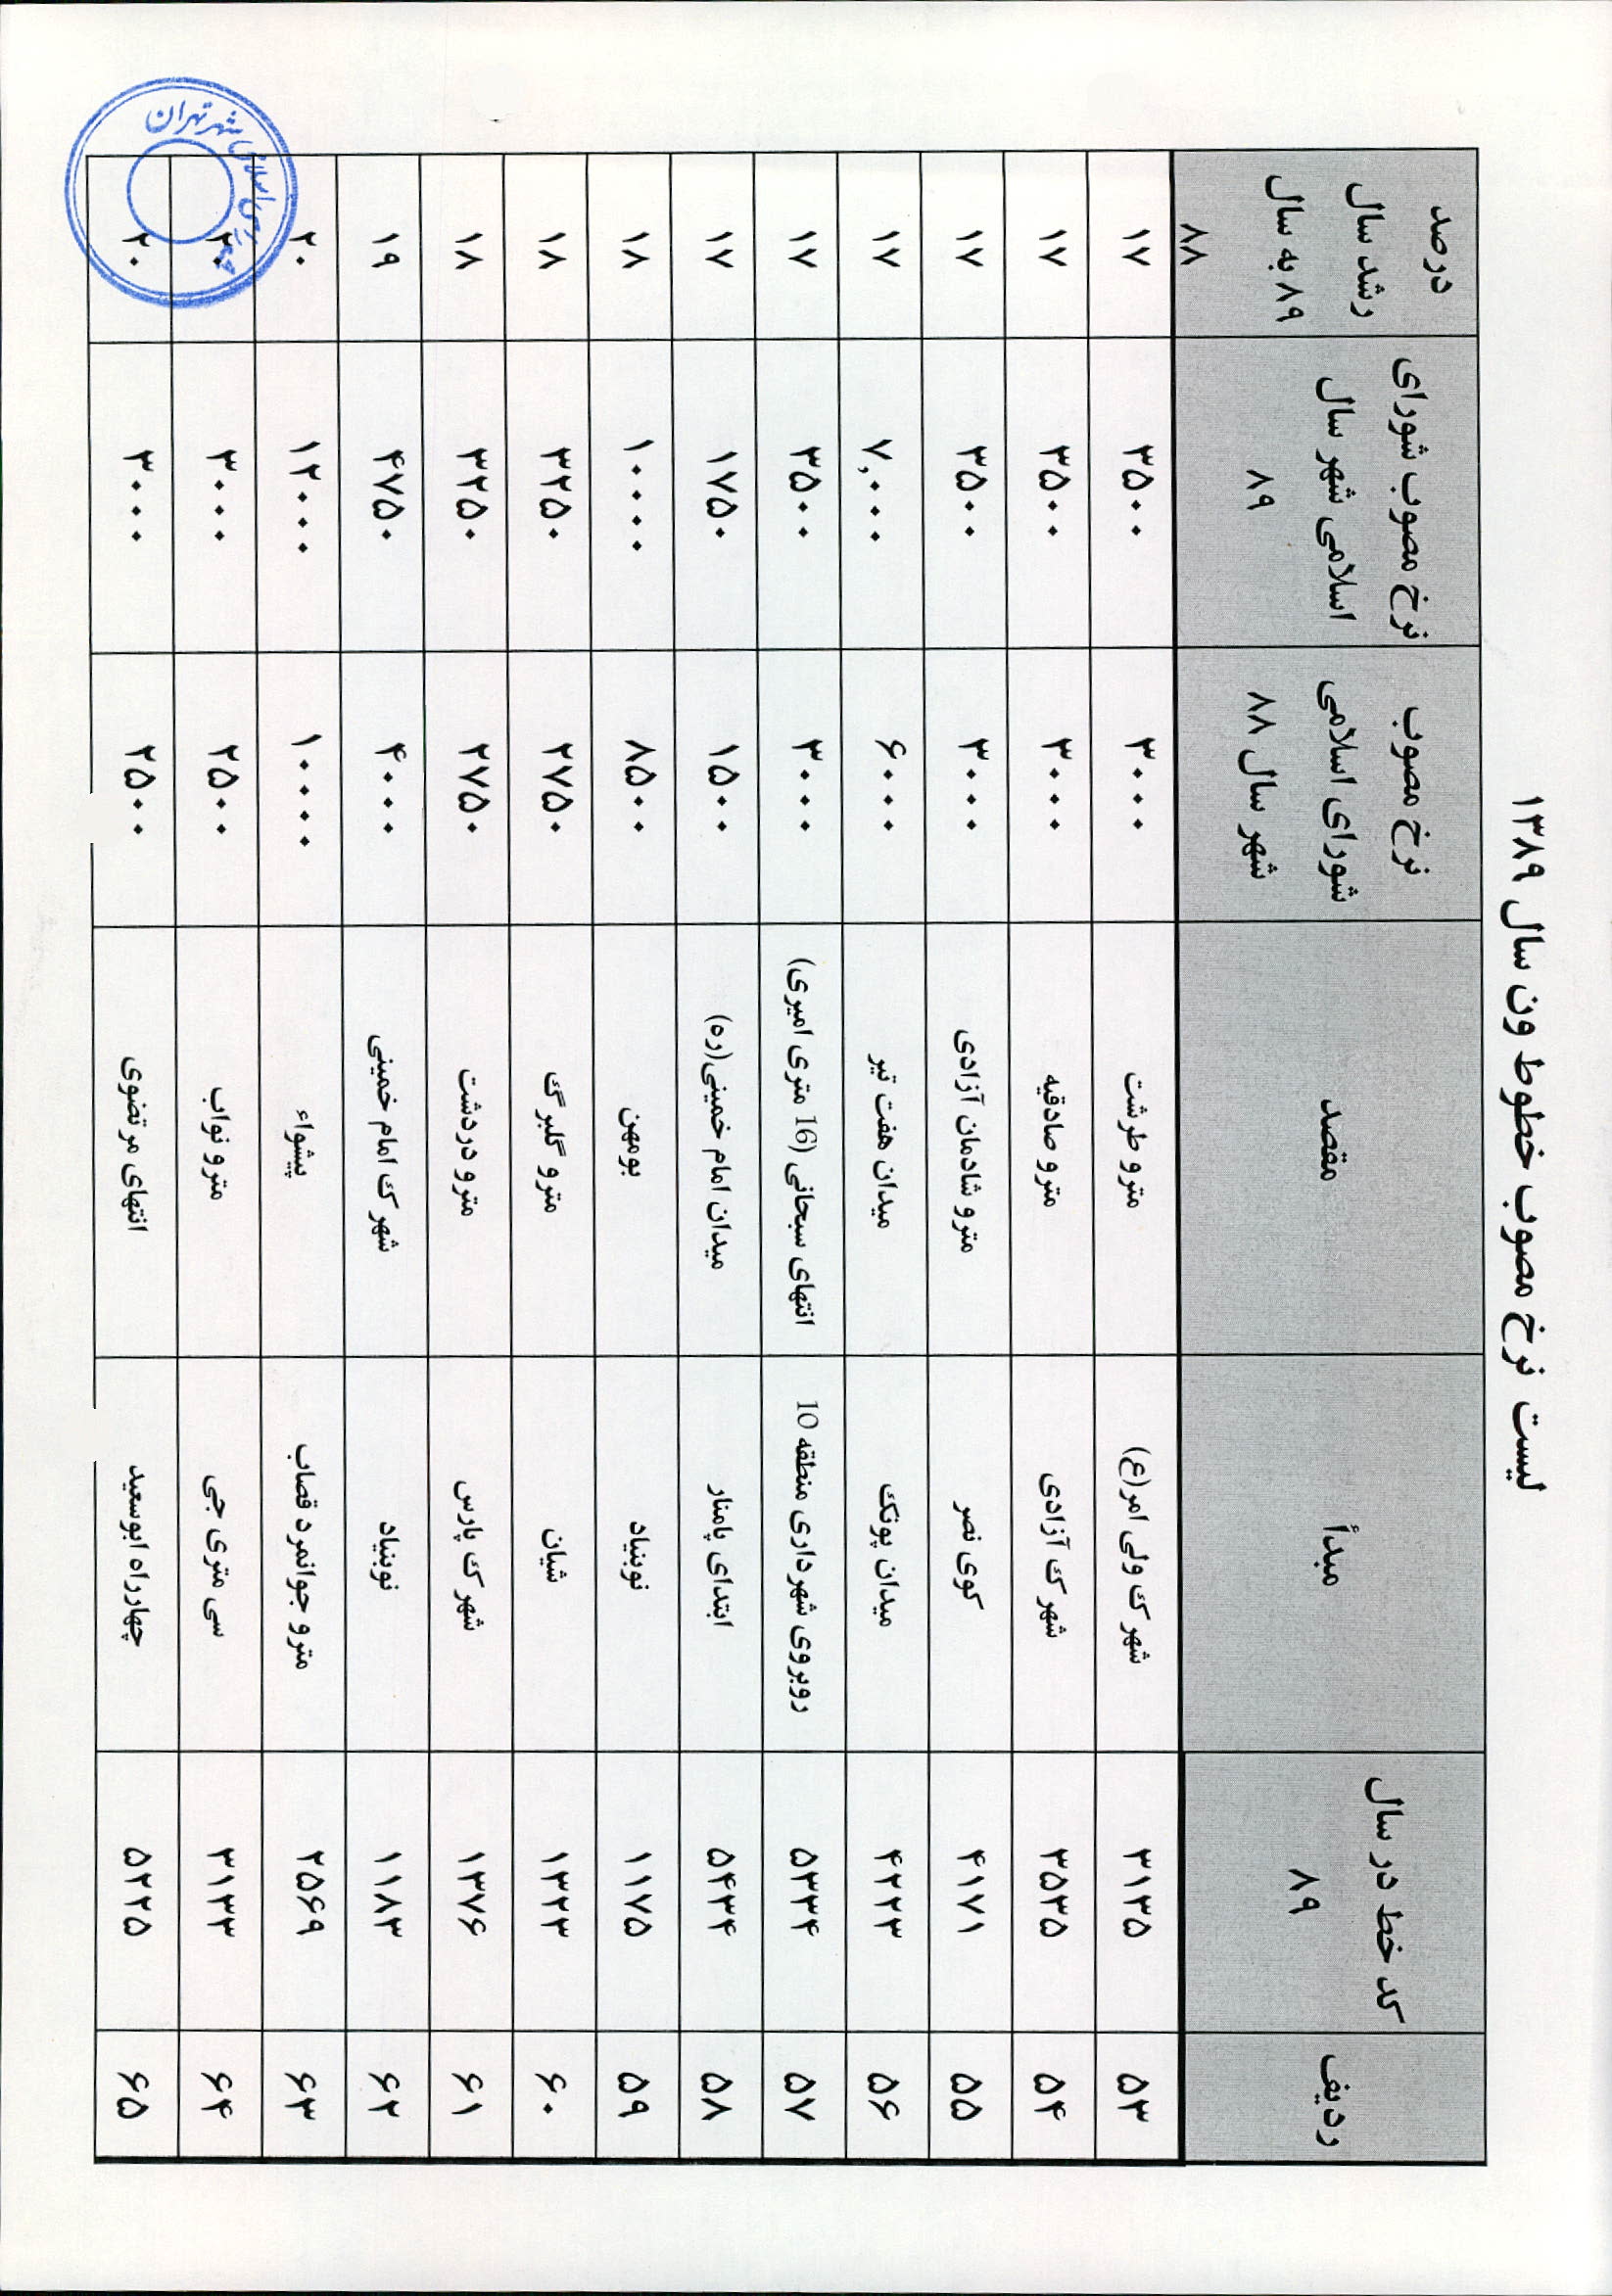 لیست نرخ مصوب خطوط ون سال ۱۳۸۹
ردیف
کد خط در سال
۸۹
مبدأ
مقصد
نرخ مصوب
شورای اسلامی
شهر سال ۸۸
نرخ مصوب شورای
اسلامی شهر سال
۸۹
درصد
رشد سال
۸۹ به سال
۸۸
۵۳ ۳۱۳۵ شهرک ولی امر(ع) مترو طرشت ۳۰۰۰ ۳۵۰۰ ۱۷
۵۴ ۳۵۳۵ شهرک آزادی مترو صادقیه ۳۰۰۰ ۳۵۰۰ ۱۷
۵۵ ۴۱۷۱ کوی نصر مترو شادمان آزادی ۳۰۰۰ ۳۵۰۰ ۱۷
۵۶ ۴۲۲۳ میدان پونک میدان هفت تیر ۶۰۰۰ ۷,۰۰۰ ۱۷
۵۷ ۵۳۳۴ روبروی شهرداری منطقه 10 انتهای سبحانی (16 متری امیری) ۳۰۰۰ ۳۵۰۰ ۱۷
۵۸ ۵۴۳۴ ابتدای پامنار میدان امام خمینی(ره) ۱۵۰۰ ۱۷۵۰ ۱۷
۵۹ ۱۱۷۵ نوبنیاد بومهن ۸۵۰۰ ۱۰۰۰۰ ۱۸
۶۰ ۱۳۲۳ شیان مترو گلبرگ ۲۷۵۰ ۳۲۵۰ ۱۸
۶۱ ۱۳۷۶ شهرک پارس مترو دردشت ۲۷۵۰ ۳۲۵۰ ۱۸
۶۲ ۱۱۸۳ نوبنیاد شهرک امام خمینی ۴۰۰۰ ۴۷۵۰ ۱۹
۶۳ ۲۵۶۹ مترو جوانمرد قصاب پیشواء ۱۰۰۰۰ ۱۲۰۰۰ ۲۰
۶۴ ۳۱۳۳ سی متری جی مترو نواب ۲۵۰۰ ۳۰۰۰ ۲۰
۶۵ ۵۲۲۵ چهارراه ابوسعید انتهای مرتضوی ۲۵۰۰ ۳۰۰۰ ۲۰
شورای اسلامی شهر تهران